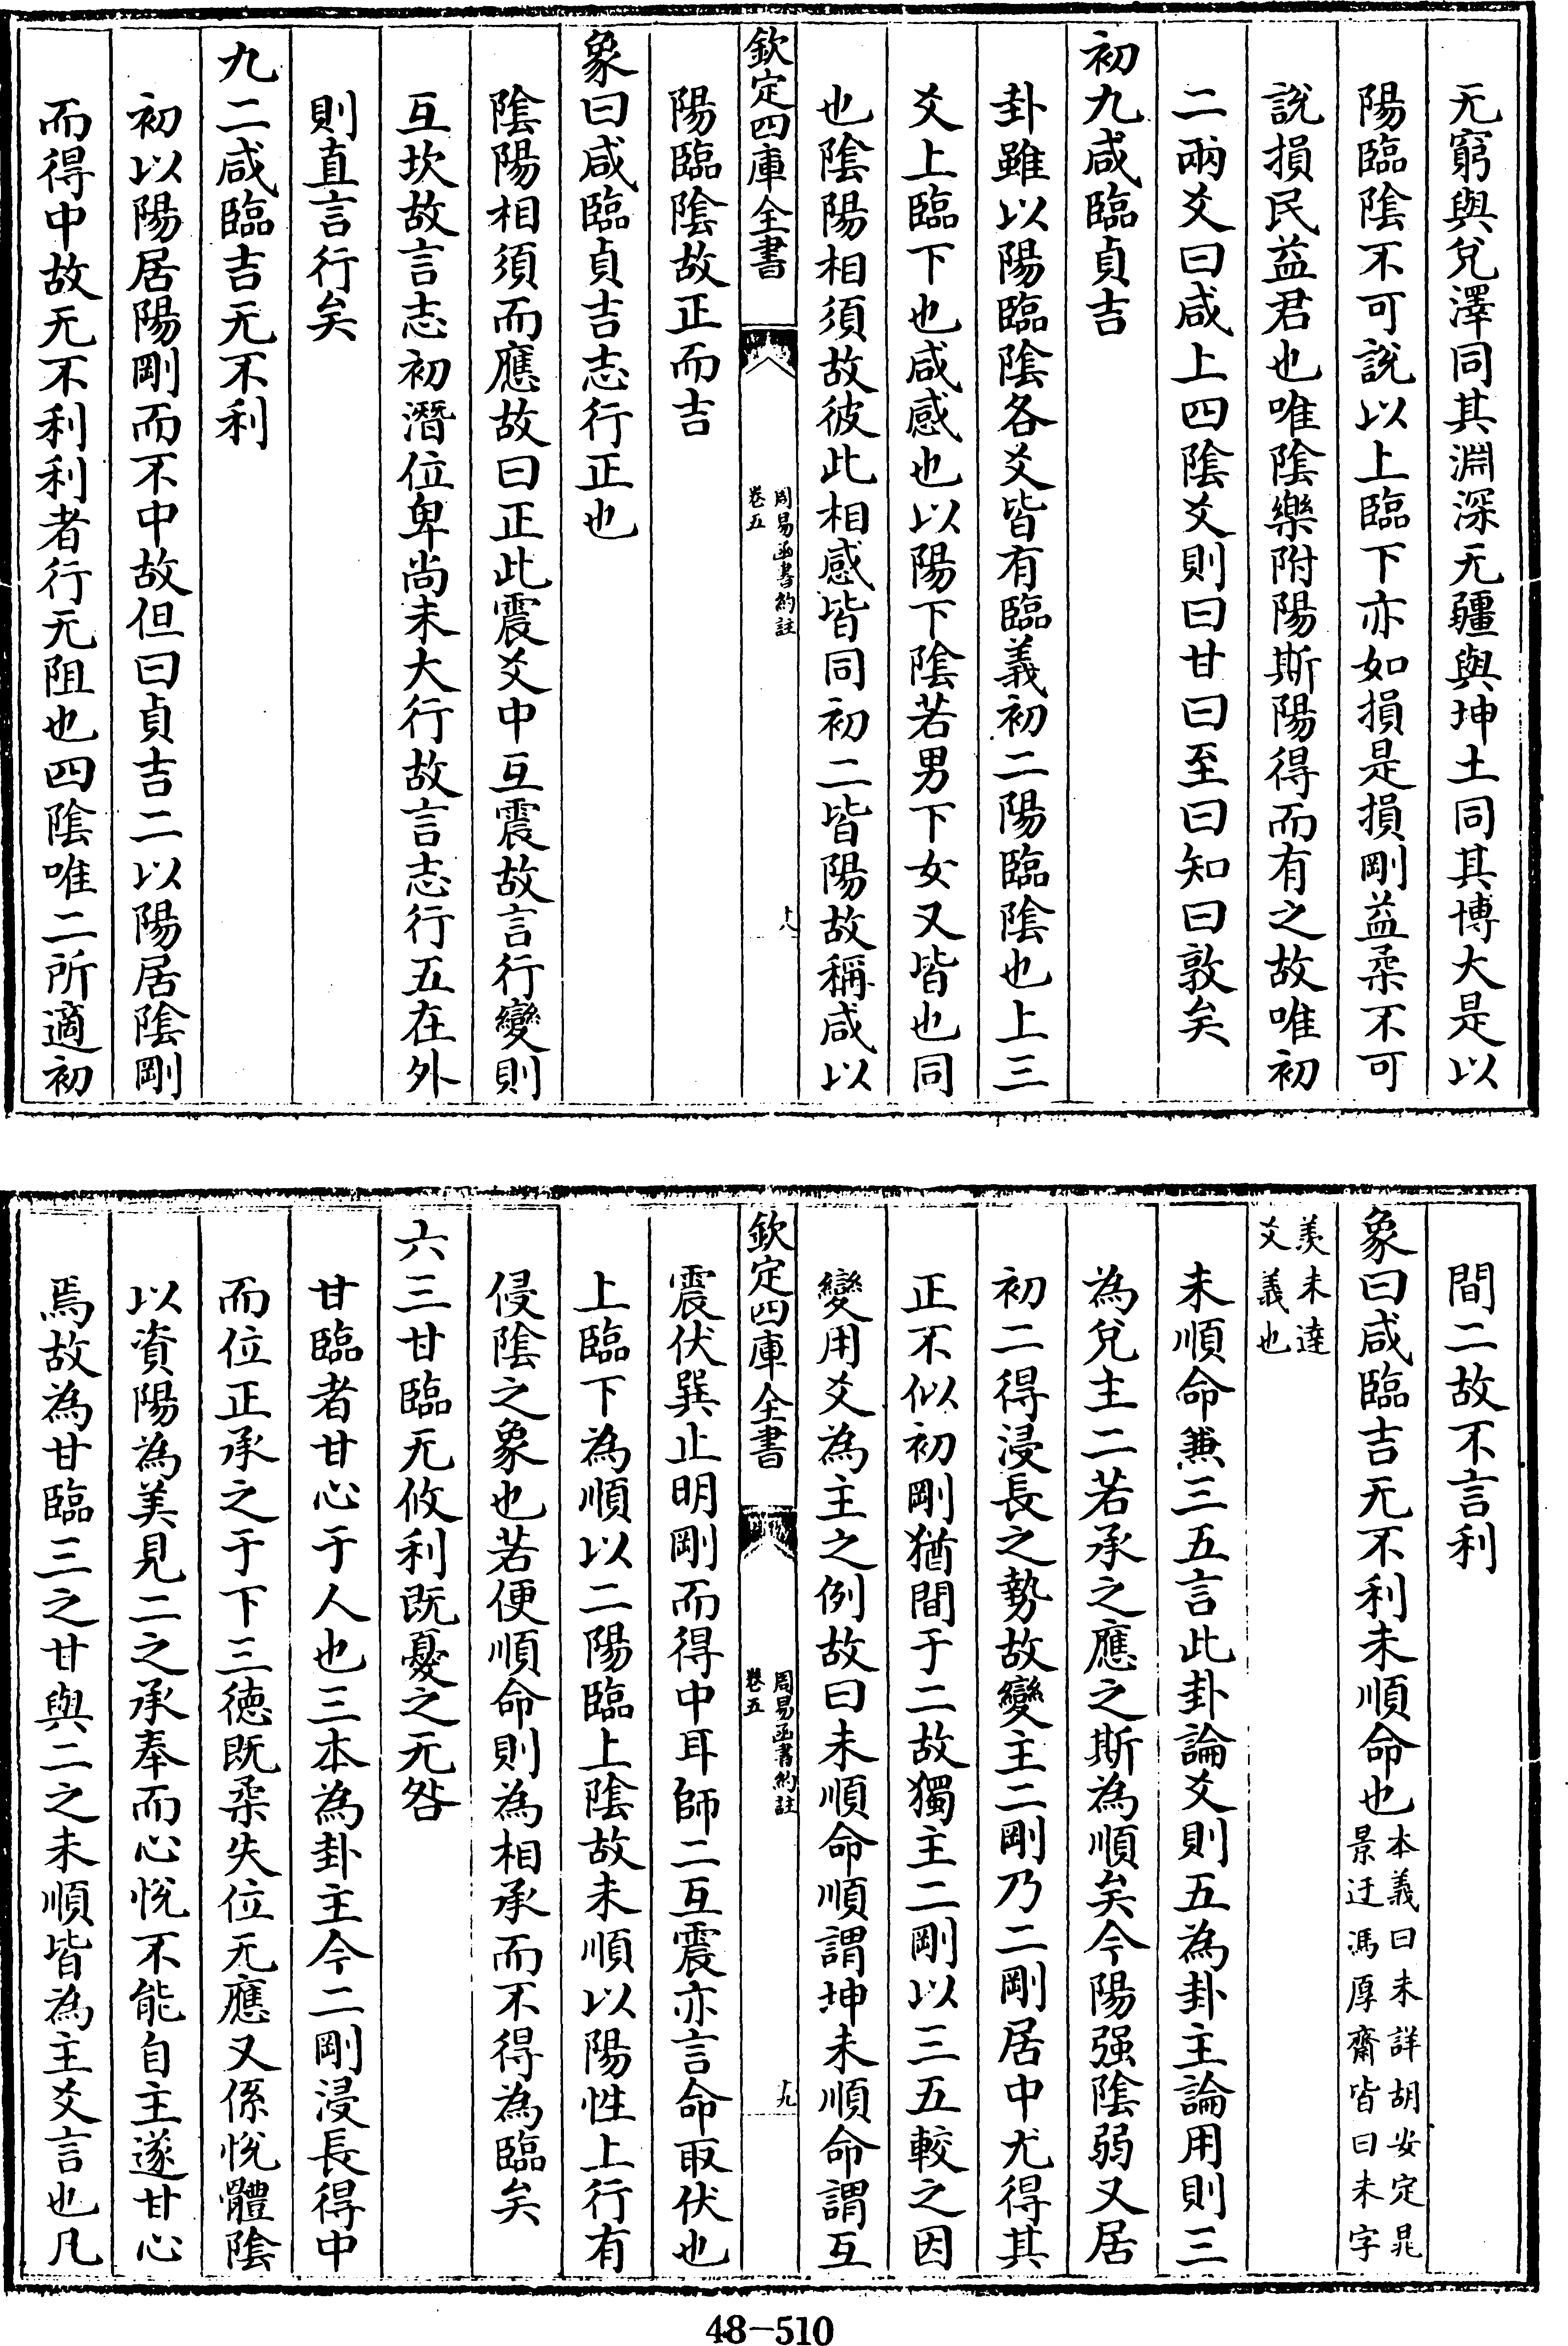 无窮與兌澤同其淵深无疆與坤土同其博大是以
陽臨陰不可說以上臨下亦如損是損剛益柔不可
說損民益君也唯陰樂附陽斯陽得而有之故唯初
二兩爻曰咸上四陰爻則曰甘曰至曰知曰敦矣
初九咸臨貞吉
卦雖以陽臨陰各爻皆有臨義初二陽臨陰也上三
爻上臨下也咸感也以陽下陰若男下女又皆也同
也陰陽相須故彼此相感皆同初二皆陽故稱咸以
欽定四庫全書
周易函書約註
卷五
十八
陽臨陰故正而吉
象曰咸臨貞吉志行正也
陰陽相須而應故曰正此震爻中互震故言行變則
互坎故言志初潛位卑尚未大行故言志行五在外
則直言行矣
九二咸臨吉无不利
初以陽居陽剛而不中故但曰貞吉二以陽居陰剛
而得中故无不利利者行无阻也四陰唯二所適初
間二故不言利
象曰咸臨吉无不利未順命也
本義曰未詳胡安定晁
景迂馮厚齋皆曰未字
羨未達
爻義也
未順命兼三五言此卦論爻則五為卦主論用則三
為兌主二若承之應之斯為順矣今陽强陰弱又居
初二得浸長之勢故變主二剛乃二剛居中尤得其
正不似初剛猶間于二故獨主二剛以三五較之因
變用爻為主之例故曰未順命順謂坤未順命謂互
欽定四庫全書
周易函書約註
卷五
十九
震伏巽止明剛而得中耳師二互震亦言命取伏也
上臨下為順以二陽臨上陰故未順以陽性上行有
侵陰之象也若便順命則為相承而不得為臨矣
六三甘臨无攸利既憂之无咎
甘臨者甘心于人也三本為卦主今二剛浸長得中
而位正承之于下三德既柔失位无應又係悅體陰
以資陽為美見二之承奉而心悅不能自主遂甘心
焉故為甘臨三之甘與二之未順皆為主爻言也凡
48-510